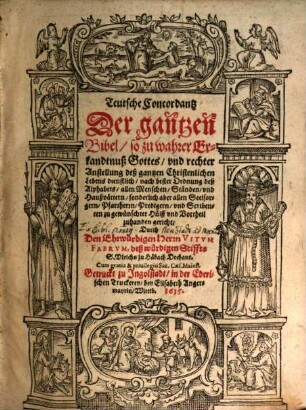 Teutsche Concordantz
Der gantzen
Bibel / so zu wahrer Er-
kandtnuß Gottes / vnd rechter
Anstellung deß gantzen Christenlichen
Lebens dienstlich / nach bester Ordnung deß
Alphabets / allen Menschen / Ständen / vnd
Haußvätern / sonderlich aber allen Seelsor-
gern / Pfarrherrn / Predigern / vnd Scriben-
ten zu gewünschter Hülff vnd Vortheil
zuhanden gericht /
Durch
Den Ehrwürdigen Herrn VITVM
FABRVM, deß würdigen Stiffts
S. Vlrichs zu Habach Dechant.
Cum gratia & priuilegio Sac. Cæs. Maiest.
Getruckt zu Ingolstadt / in der Ederi-
schen Truckerey / bey Elisabeth Anger-
mayrin / Wittib.
1615.